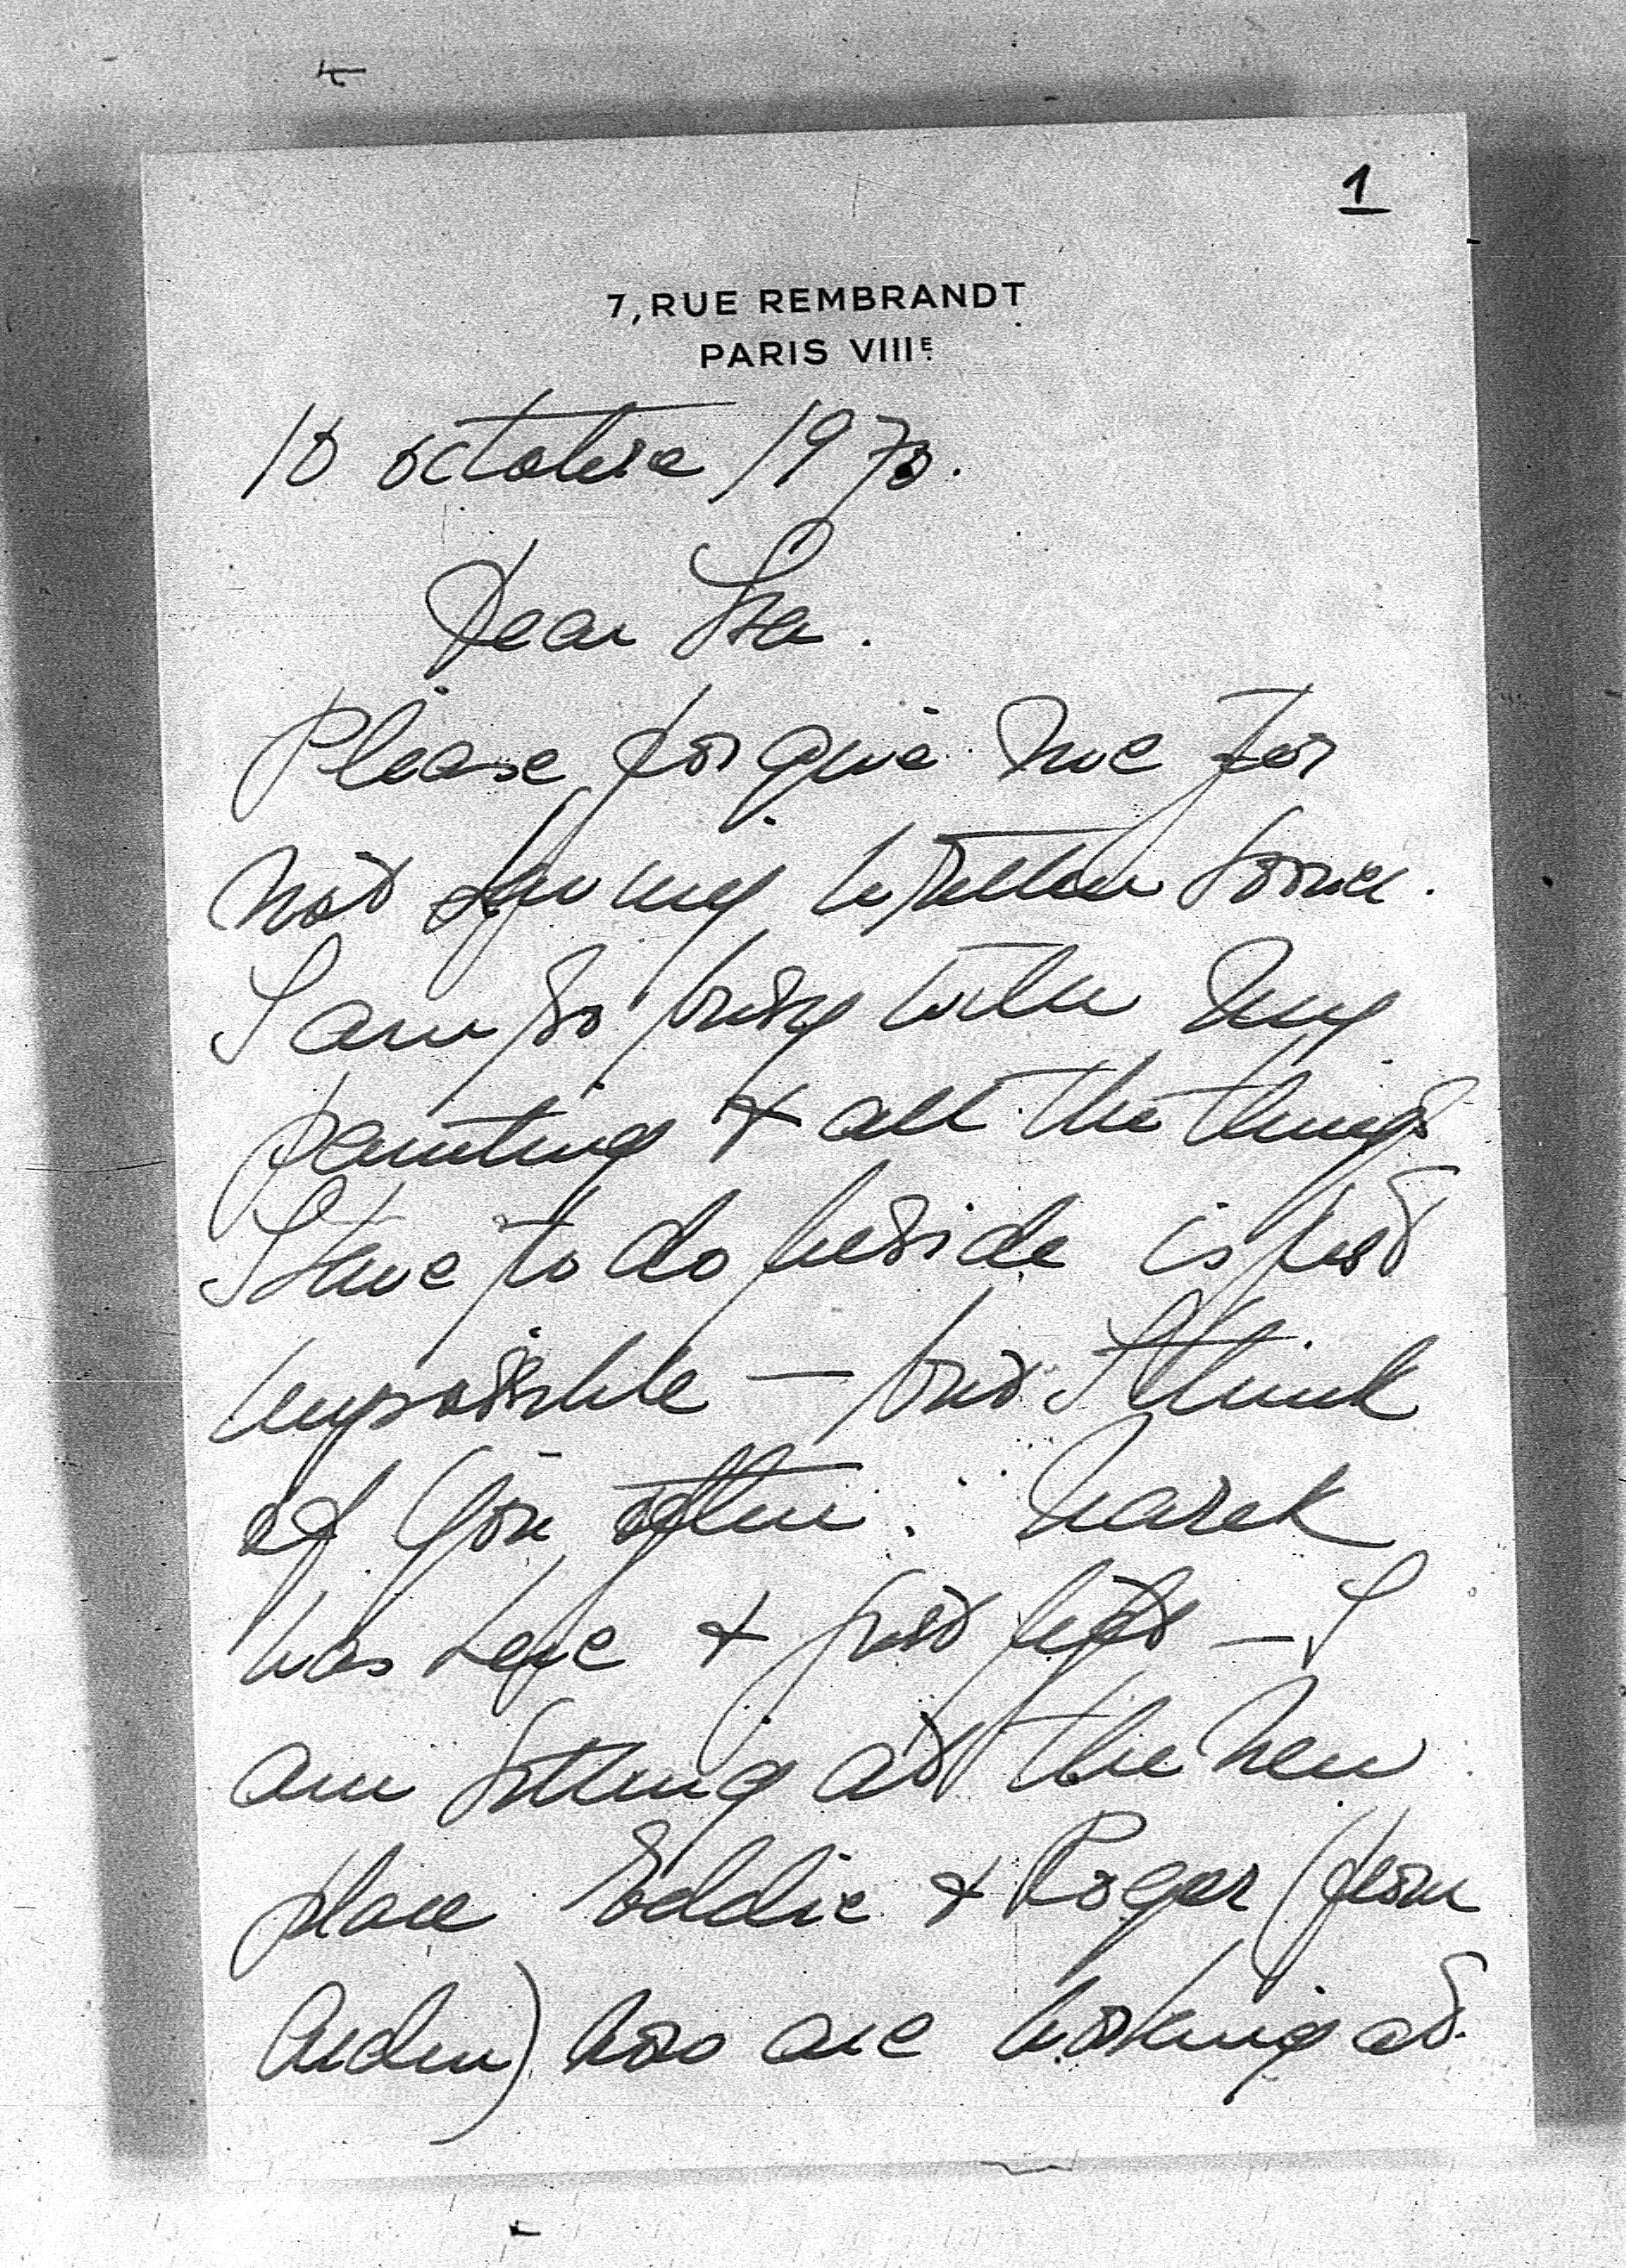 1
7, RUE REMBRANDT
PARIS VIIIE.
10 octobre 1970.
Dear Isa.
Please forgive me for
not having written sooner.
I am so busy with my
painting & all the things
I have to do beside is just
impossible — but I think
of you often. Marek
was here & just left — I
am sitting at the new
place Eddie & Roger (from
Arden) who are working at